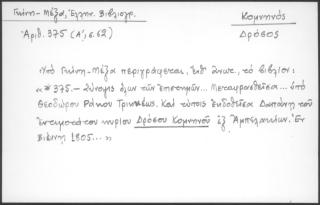 Γκίνη - Μέξα, Ἑλλην. Βιβλιογρ.
Ἀριθ. 375 (Α', σ. 62)
Κομνηνός
Δρόσος
Ὑπό Γκίνη - Μέξα περιγράφεται, ἔνθ' ἄνωτ., τό βιβλίον:
«* 375. - Σύνοψις ὅλων τῶν ἐπιστημῶν... Μεταφρασθεῖσα... ὑπό
Θεοδώρου Ράκου Τρικκέως. Καί τύποις ἐκδοθεῖσα Δαπάνῃ τοῦ
ἐντιμοτάτου κυρίου Δρόσου Κομνηνοῦ ἐξ Ἀμπελακίων. Ἐν
Βιέννῃ 1805... »